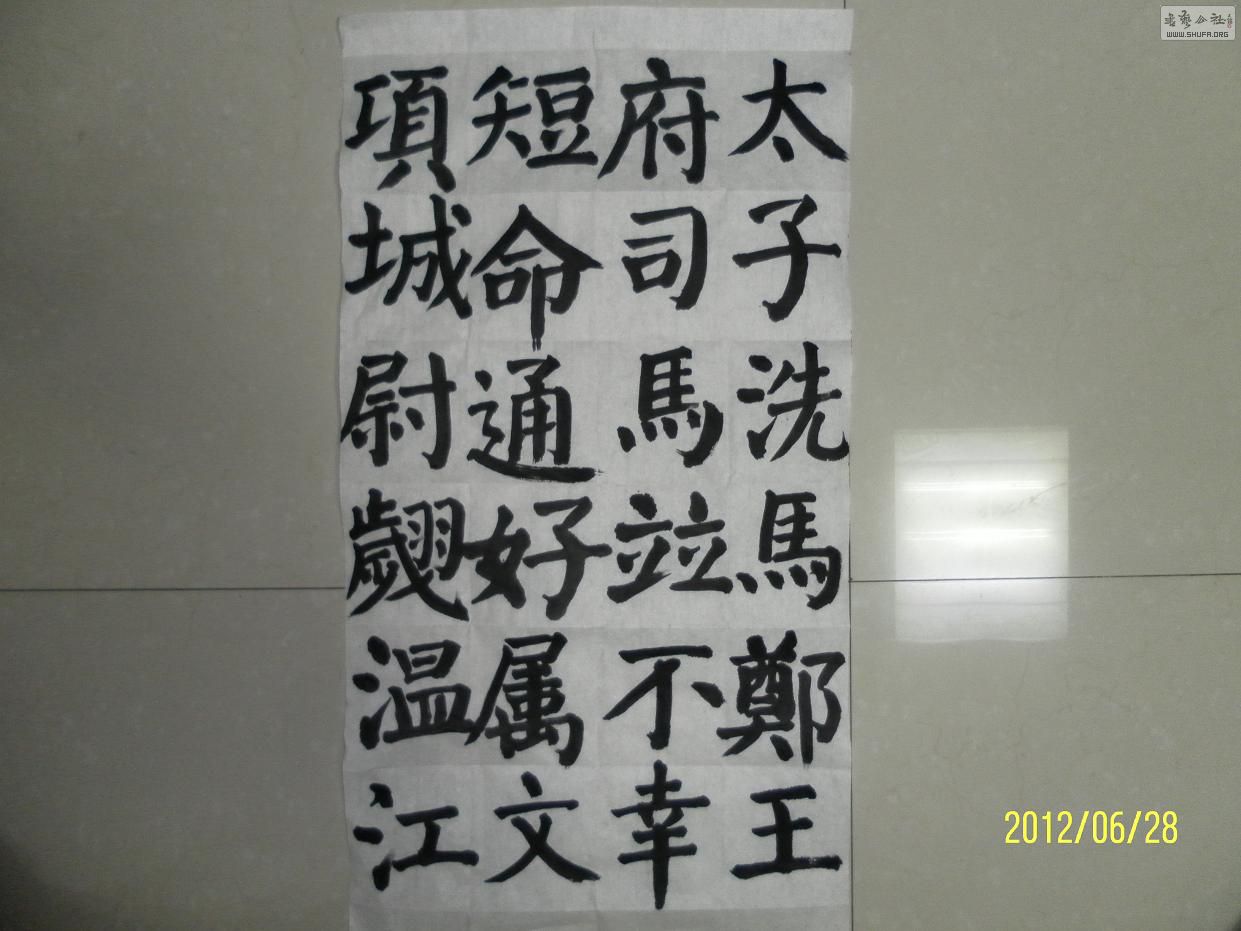 太子洗馬鄭王
府司馬竝不幸
短命通好属文
項城尉翽温江
書藝公社
WWW.SHUFA.ORG
2012/06/28